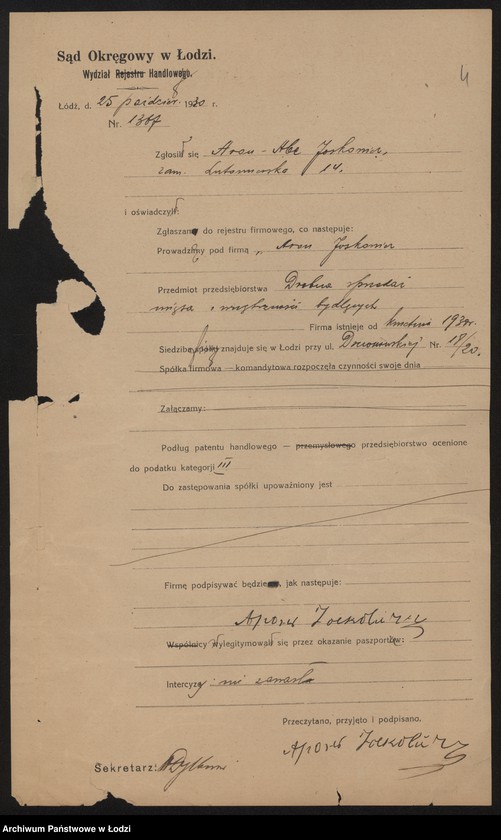 4
Sąd Okręgowy w Łodzi.
Wydział Rejestru Handlowego.
Łódź, d. 25 paździer. 1930 r.
Nr. 1367
Zgłosił się Aron-Abe
zam. 14.
i oświadczył:
Zgłaszam do rejestru firmowego, co następuje:
Prowadzimy pod firmą „Aron
Przedmiot przedsiębiorstwa Drobna sprzedaż
mięsa i wnętrzności bydlęcych
Firma istnieje od kwietnia 1930 r.
Siedziba spółki firmy znajduje się w Łodzi przy ul. Nr. 18/20.
Spółka firmowa — komandytowa rozpoczęła czynności swoje dnia
Załączamy:
Podług patentu handlowego — przemysłowego przedsiębiorstwo ocenione
do podatku kategorji III
Do zastępowania spółki upoważniony jest
Firmę podpisywać będzie, jak następuje:
Wspólnicy wylegitymował się przez okazanie paszportów:
Intercyzy nie zawarł
Przeczytano, przyjęto i podpisano.
Sekretarz:
Archiwum Państwowe w Łodzi